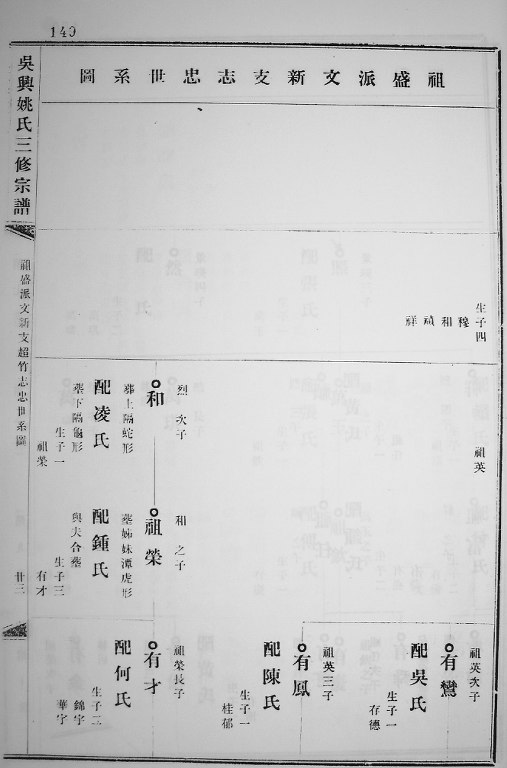 149
祖盛派文新支志忠世系圖
吳興姚氏三修宗譜
祖盛派文新支超竹志忠世系圖
廿三
生子四
穆
和
祥
祖英
烈次子
和
鄉上隔蛇形
配凌氏
葬下隔龜形
生子一
祖榮
和之子
祖榮
葬姊妹潭虎形
配鍾氏
與夫合葬
生子三
有才
祖英次子
有鸞
配吳氏
生子一
存德
祖英三子
有鳳
配陳氏
生子一
桂郁
祖榮長子
有才
配何氏
生子二
錦宇
華宇